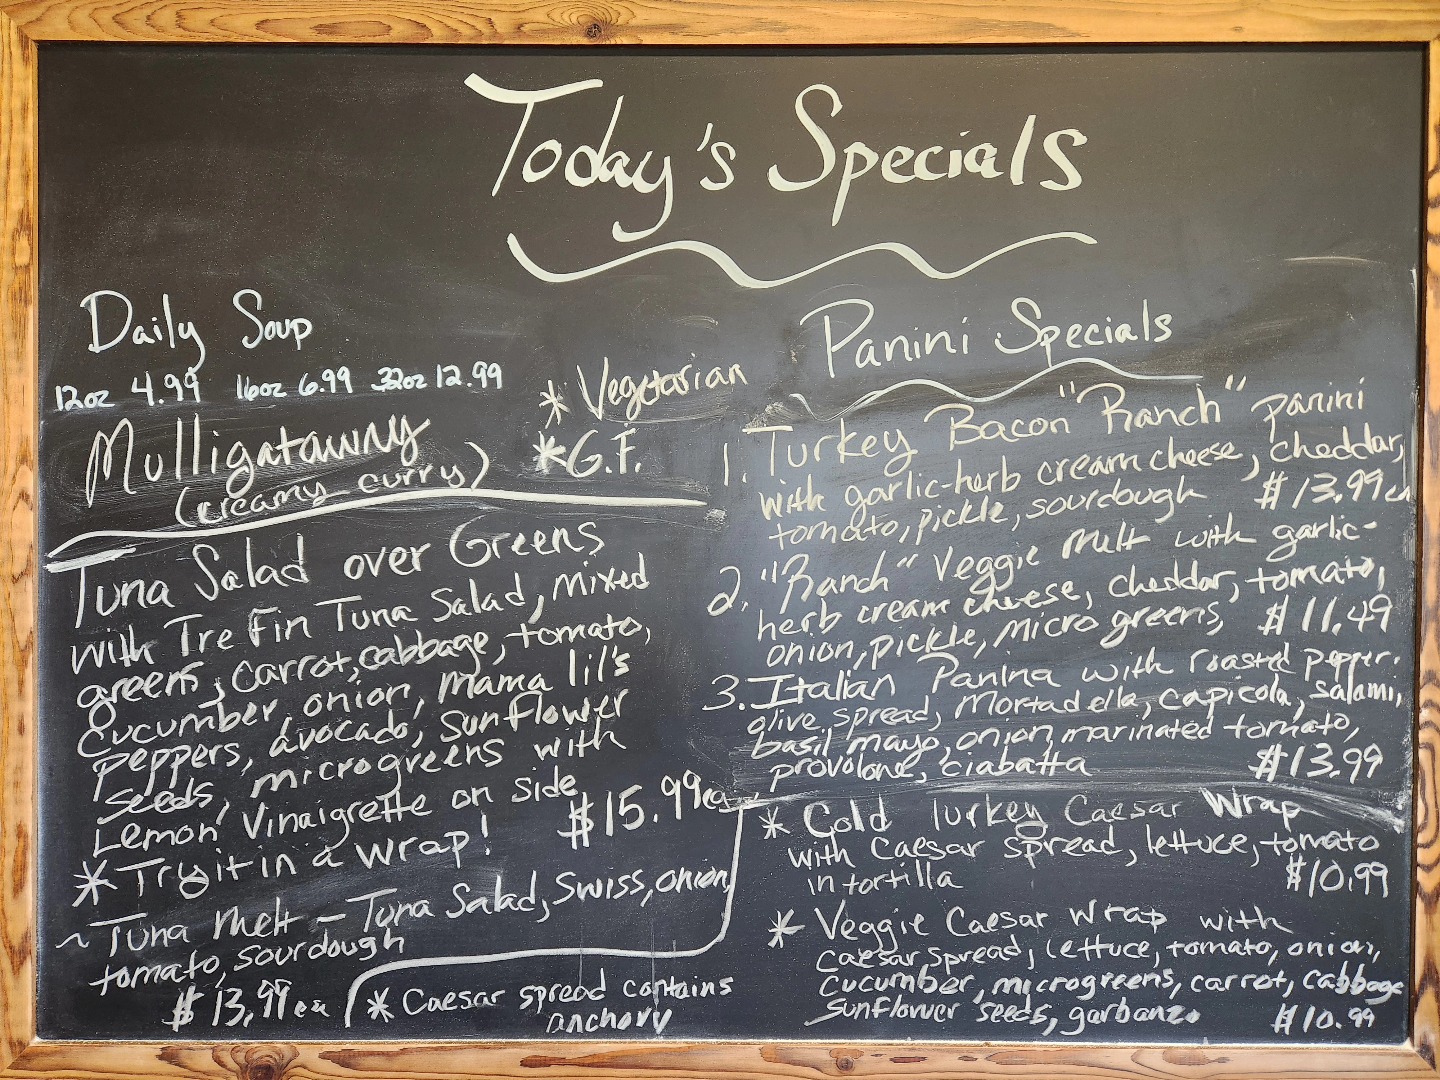 Today's Specials
Daily Soup
12oz 4.99 16oz 6.99 32oz 12.99
Mulligatawny
(creamy curry)
* Vegetarian
* G.F.
Tuna Salad over Greens
with Tre Fin Tuna Salad, mixed
greens, carrot, cabbage, tomato,
cucumber, onion, mama lil's
peppers, avocado, sunflower
seeds, microgreens with
Lemon Vinaigrette on side
$15.99ea
* Try it in a wrap!
~ Tuna Melt - Tuna Salad, Swiss, onion,
tomato, sourdough
$13.99 ea
* Caesar spread contains
anchovy
Panini Specials
1. Turkey Bacon "Ranch" panini
with garlic-herb cream cheese, cheddar,
tomato, pickle, sourdough $13.99ea
2. "Ranch" Veggie Melt with garlic-
herb cream cheese, cheddar, tomato,
onion, pickle, micro greens, $11.49
3. Italian Panina with roasted pepper.
olive spread, Mortadella, capicola, salami,
basil mayo, onion, marinated tomato,
provolone, ciabatta $13.99
* Cold Turkey Caesar Wrap
with Caesar spread, lettuce, tomato
in tortilla $10.99
* Veggie Caesar Wrap with
caesar spread, lettuce, tomato, onion,
cucumber, microgreens, carrot, cabbage
sunflower seeds, garbanzo $10.99